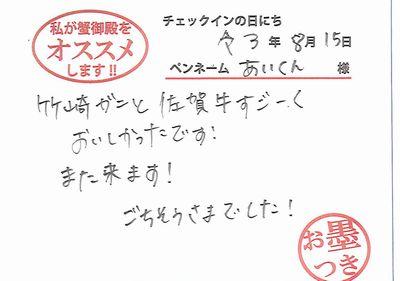 私が蟹御殿を
オススメ
します!!
チェックインの日にち
令3年8月15日
ペンネーム あいくん 様
竹崎ガニと佐賀牛すごーく
おいしかったです!
また来ます!
ごちそうさまでした!
お墨
つき